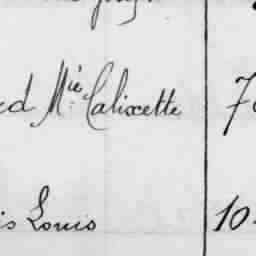 ed Mie Calixette 7
is Louis 10